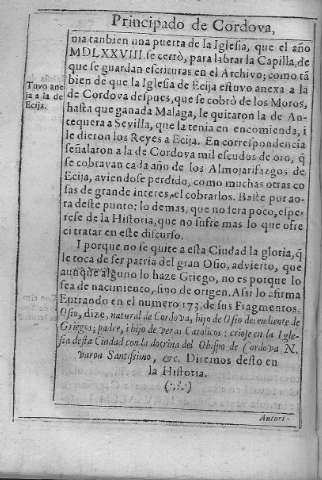 Principado de Cordova,
nia tanbien una puerta de la Iglesia, que el año
MDLXXVIII. se cerrò, para labrar la Capilla, de
que se guardan escrituras en el Archivo; como tã
bien de que la Iglesia de Ecija estuvo anexa a la
de Cordova despues, que se cobrò de los Moros,
hasta que ganada Malaga, le quitaron la de An-
tequera a Sevilla, que la tenia en encomienda, i
le dieron los Reyes a Ecija. En correspondencia
señalaron a la de Cordova mil escudos de oro, q̃
se cobravan cada año de los Almojarifazgos de
Ecija, aviendose perdido, como muchas otras co
sas de grande interes, el cobrarlos. Baste por ao-
ra deste punto: lo demas, que no sera poco, espe-
rese de la Historia, que no sufre mas lo que ofre
ci tratar en este discurso.
I porque no se quite a esta Ciudad la gloria, q̃
le toca de ser patria del gran Osio, advierto, que
aunque alguno lo haze Griego, no es porque lo
sea de nacimiento, sino de origen. Assi lo afirma
Entrando en el numero 173. de sus Fragmentos.
Osio, dize, natural de Cordova, hijo de Osio decendiente de
Griegos; padre, i hijo de veras Catolicos: criose en la Igle-
sia desta Ciudad con la dotrina del Obispo de Cordova N.
varon Santissimo, &c. Diremos desto en
la Historia.
(:,!,:)
Tuvo ane
ja a la de
Ecija.
Autori-